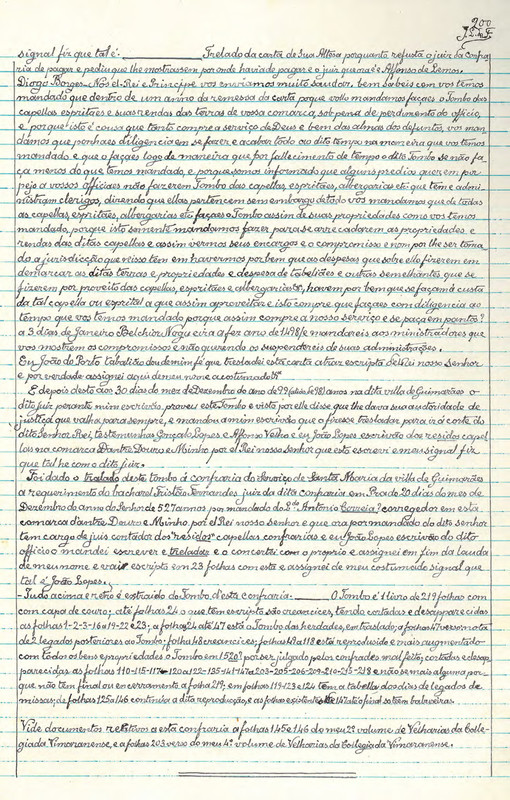 200
signal fiz que tal é. Trelado da carta de Sua Altesa porquanto refusta o juiz da Confra-
ria de pagar e pediu que lhe mostrassem por onde havia de pagar e o juiz que ora é Affonso de Lemos.
Diogo Borges _ Nós el-Rei e Principe vos enviamos muito saudar bem sabeis com vos temos
mandado que dentro de um anno da remessa da carta porque vollo mandamos façaes o Tombo das
capellas espritães e suas rendas das terras de vossa comarca, sob pena de perdimento do officio,
e porque isto é cousa que tanto compre a serviço de Deus e bem das almas dos defuntos, vos man-
damos que ponhaes diligencia em se fazer e acabar todo ao dito tempo na maneira que vos temos
mandado e que o façaes logo de maneira que por fallecimento de tempo o dito Tombo se não fa-
ça menos do que temos mandado, e porque somos informado que alguns predios querem por
pejo a vossos officiaes não fazerem Tombo das capellas, espritães, albergarias etc. que tem e admi-
nistram clerigos, dizendo que elles pertencem sem embargo de todo vos mandamos que de todas
as capellas, espritães, albergarias etc. façaes o Tombo assim de suas propriedades como vos temos
mandado, porque isto somente mandamos fazer para se arrecadarem as propriedades e
rendas das ditas capellas e assim vermos seus encargos e o compromisso e nom por lhe ser toma-
do a jurisdicção que nisso têm e haveremos por bem que as despesas que sobre ello fizerem em
demarcar as ditas terras e propriedades e despesa de tabeliães e outras semelhantes que se
fizerem por proveito das capellas, espritães e albergarias etc, havem por bem que se façam á custa
da tal capella ou esprital a que assim aproveitar e isto compre que façaes com diligencia ao
tempo que vos temos mandado porque assim compre a nosso serviço e se faça em pontos?
a 3 dias de Janeiro Belchior Nogueira a fez ano de 1498 / e mandareis aos ministradores que
vos mostrem os compromissos e não querendo os suspendereis de suas administrações.
Eu João do Porto tabalião dou de mim fé que tresladei esta carta atraz escripta de el-Rei nosso Senhor
e por verdade assignei aqui de meu nome acostumado
E depois desto aos 30 dias do mez de Dezembro do ano de 99 (aliás de 98) annos na dita villa de Guimarães o
dito juiz perante mim escrivão, proveu este Tombo e visto por elle disse que lhe dava sua auctoridade de
justiça que valha para sempre, e mandou a mim escrivão que o fizesse tresladar para ir á corte do
dito Senhor Rei, testemunhas Gonçalo Lopes e Affonso Velho e eu João Lopes escrivão dos residos capel-
las na comarca Dantre Douro e Minho por el Rei nosso Senhor que esto escrevi e meu signal fiz
que tal he como o dito juiz.
Foi dado o tralado deste tombo á confraria do Serviço de Santa Maria da villa de Guimarães
a requerimento do bacharel Tristão Fernandes juiz da dita confraria em Prado 20 dias do mes de
Dezembro do anno do Senhor de 527 annos por mandado do L.do Antonio Correia? corregedor em esta
comarca d'antre Douro e Minho por el Rei nosso senhor e que ora por mandado do dito senhor
tem cargo de juiz contador dos "residos" capellas confrarias e eu João Lopes escrivão do dito
officio o mandei escrever e treladar e o concertei com o proprio e assignei em fim da lauda
de meu nome e vai escripto em 23 folhas com esta e assignei de meu costumado signal que
tal é João Lopes.
Tudo acima e retro é extraido do Tombo d'esta confraria: O Tombo é 1 livro de 219 folhas com
com capa de couro; até folhas 24 o que tem escripto são creancices, tendo cortadas e desapparecidas
as folhas 1-2-3-16 a 19-22 e 23; a folha 24 até 47 está o Tombo das herdades, em traslado; a folhas 47 verso nota
de 2 legados posteriores ao Tombo; folha 48 creancices; folha 49 a 118 está reproduzido e mais augmentado
com todos os bens e propriedades o Tombo em 1520? por ser julgado pelos confrades mal feito; cortadas e desap-
parecidas as folhas 110-115-117- 120 a 122-135-141-147 a 203-205-206-209-210-215-218 e não se mais alguma por-
que não tem final ou encerramento a folha 219; em folhas 119-123 e 124 tem a tabella dos dias de legados de
missas; de folhas 125 a 146 continua a dita reproducção, e as folhas existentes de 147 até o final só tem baboseiras.
Vide documentos relativos a esta confraria a folhas 145 e 146 do meu 2º volume de Velharias da Colle-
giada Vimaranense, e a folhas 203 verso do meu 4º volume de Velharias da Collegiada Vimaranense.